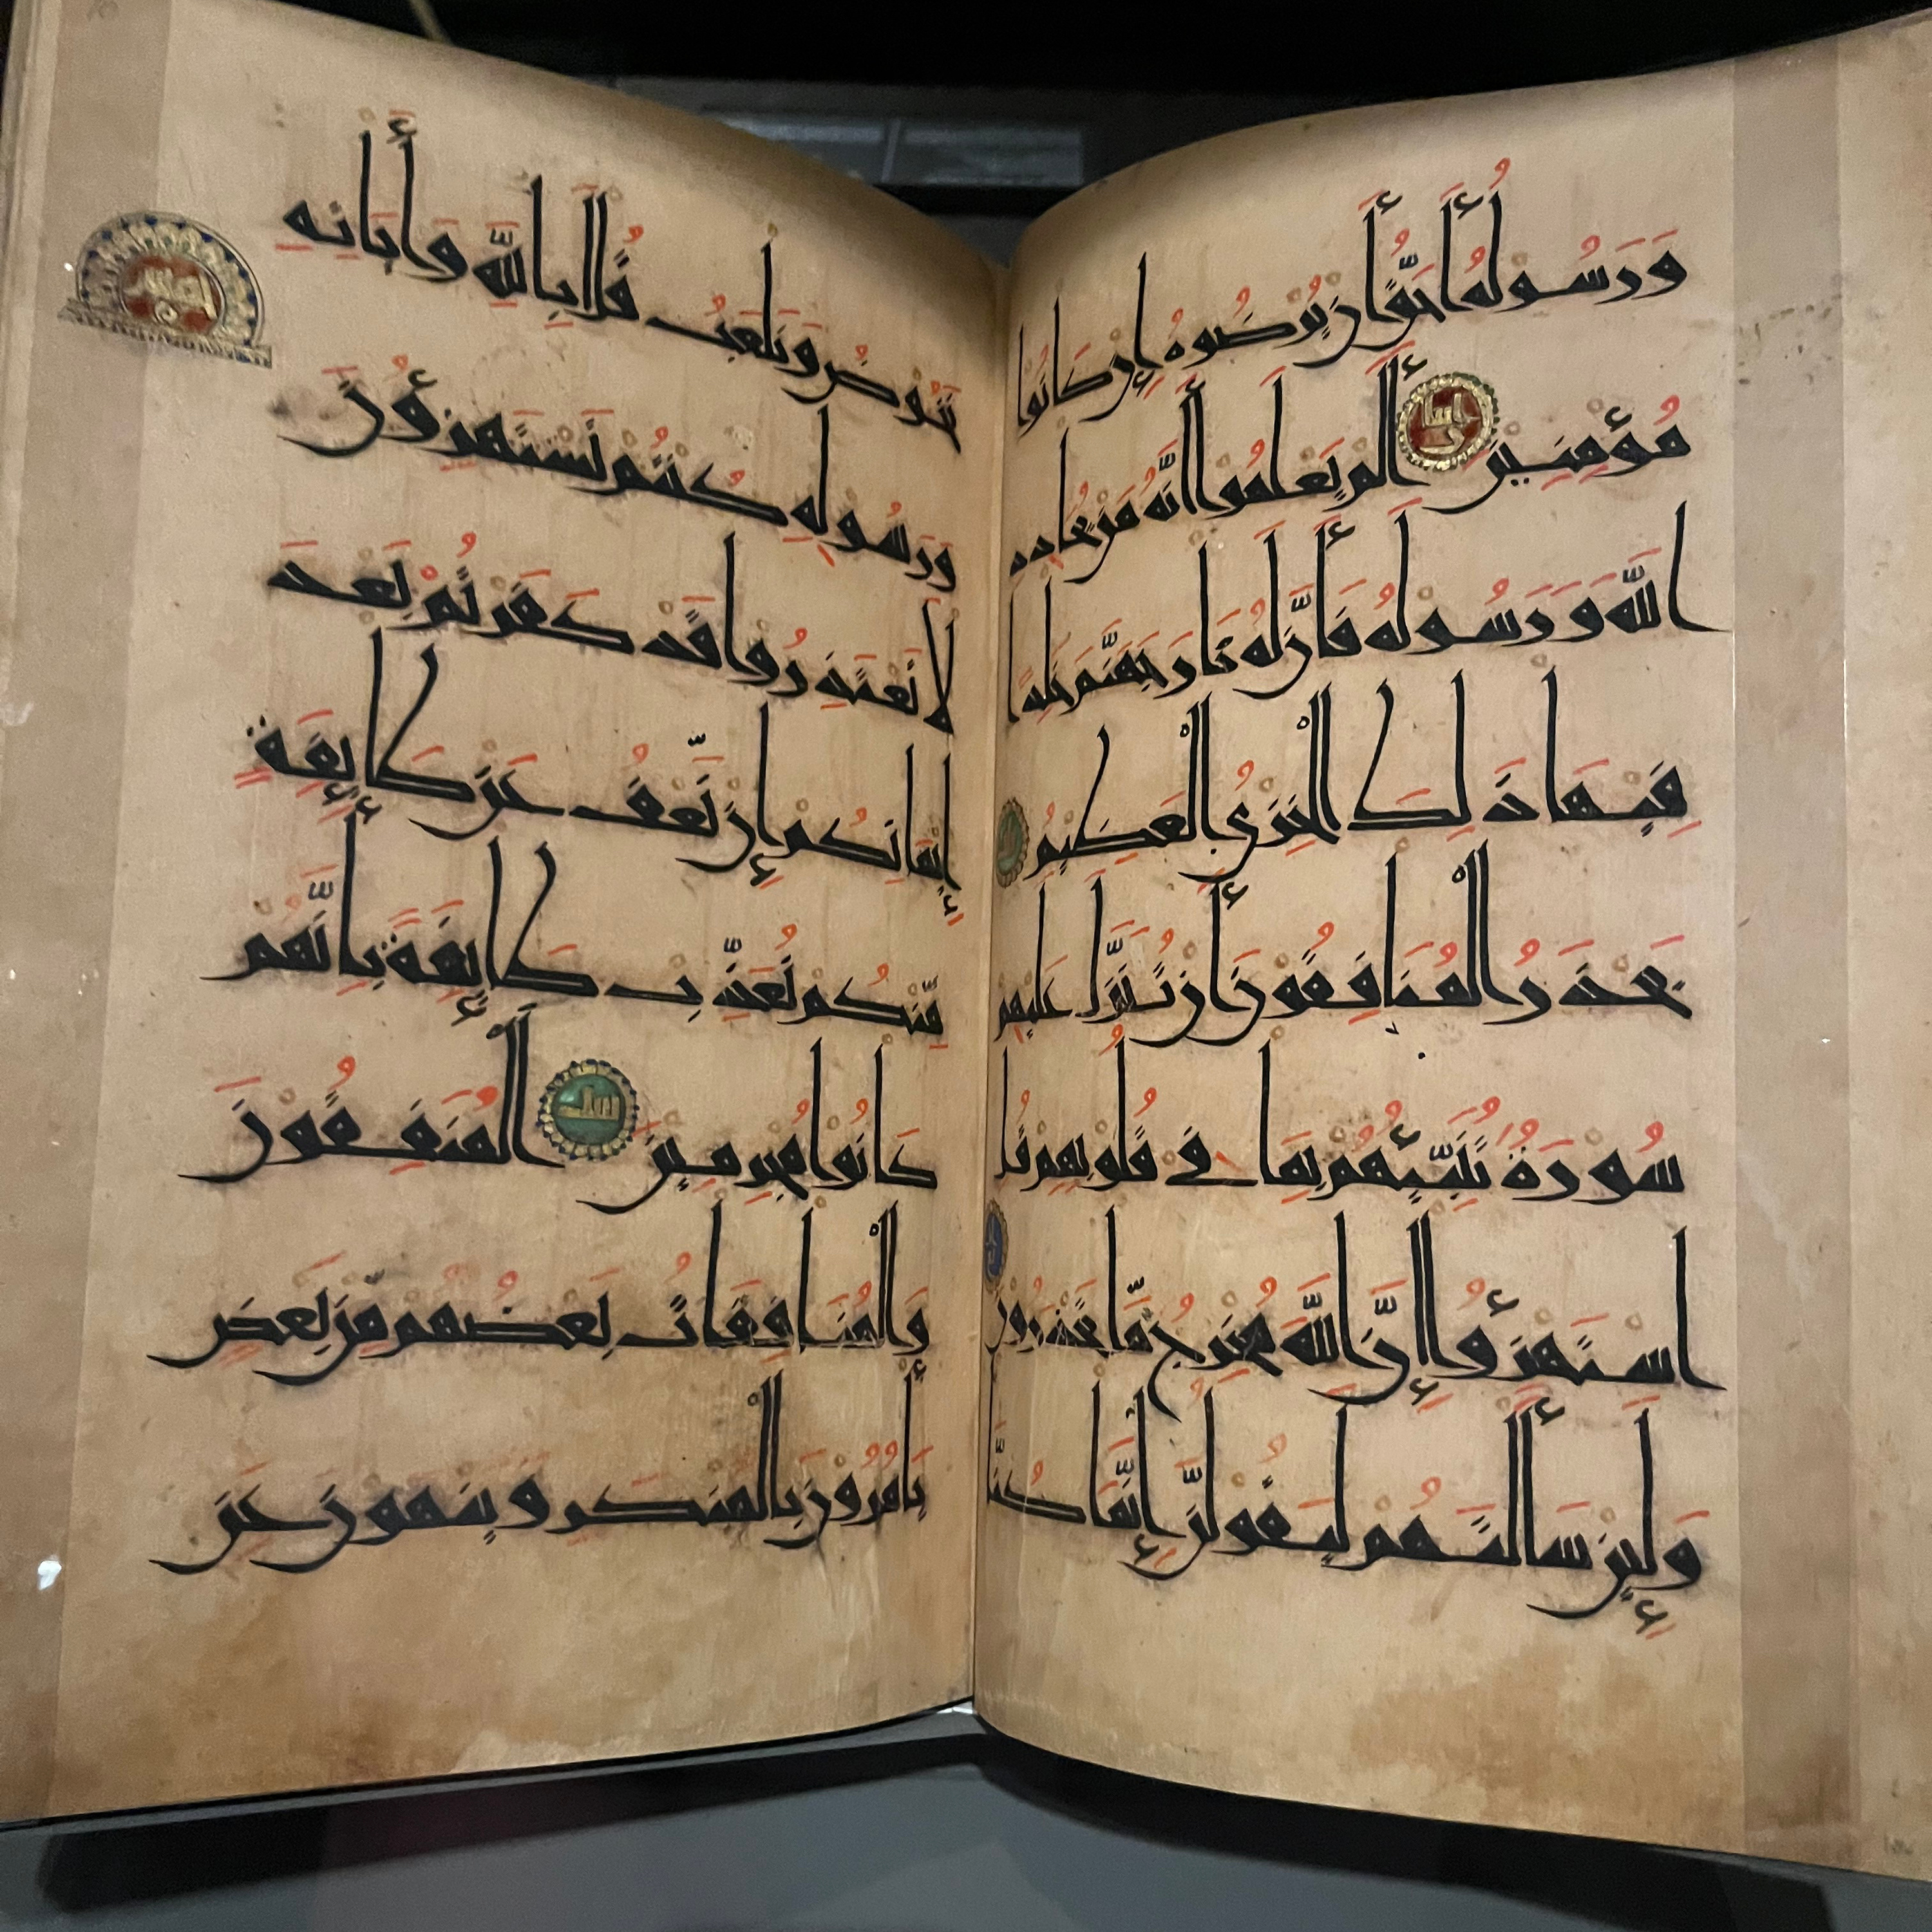 وَرَسُولُهُ أَحَقُّ أَنْ يُرْضُوهُ إِنْ كَانُوا
مُؤْمِنِينَ أَلَمْ يَعْلَمُوا أَنَّهُ مَنْ يُحَادِدِ
اللَّهَ وَرَسُولَهُ فَأَنَّ لَهُ نَارَ جَهَنَّمَ خَالِدًا
فِيهَا ذَلِكَ الْخِزْيُ الْعَظِيمُ
يَحْذَرُ الْمُنَافِقُونَ أَنْ تُنَزَّلَ عَلَيْهِمْ
سُورَةٌ تُنَبِّئُهُمْ بِمَا فِي قُلُوبِهِمْ قُلِ
اسْتَهْزِءُوا إِنَّ اللَّهَ مُخْرِجٌ مَّا تَحْذَرُونَ
وَلَئِنْ سَأَلْتَهُمْ لَيَقُولُنَّ إِنَّمَا كُنَّا
نَخُوضُ وَنَلْعَبُ قُلْ أَبِاللَّهِ وَأٰيَاتِهِ
وَرَسُولِهِ كُنْتُمْ تَسْتَهْزِءُونَ
لَا تَعْتَذِرُوا قَدْ كَفَرْتُمْ بَعْدَ
إِيمَانِكُمْ إِنْ نَّعْفُ عَنْ طَائِفَةٍ
مِّنْكُمْ نُعَذِّبْ طَائِفَةً بِأَنَّهُمْ
كَانُوا مُجْرِمِينَ الْمُنَفِقُونَ
وَالْمُنَافِقَاتُ بَعْضُهُمْ مِّنْ بَعْضٍ
يَأْمُرُونَ بِالْمُنْكَرِ وَيَنْهَوْنَ عَنِ